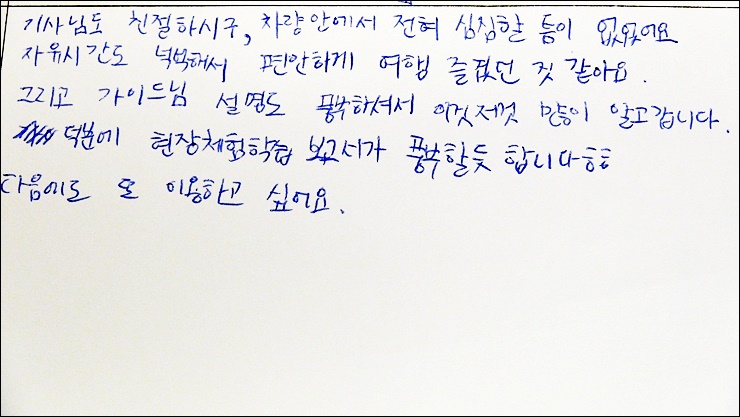 기사님도 친절하시구, 차량안에서 전혀 심심할 틈이 없었어요
자유시간도 넉넉해서 편안하게 여행 즐겼던 것 같아요.
그리고 가이드님 설명도 풍부하셔서 이것저것 많이 알고갑니다.
덕분에 현장체험학습 보고서가 풍부할듯 합니다ㅎㅎ
다음에도 또 이용하고 싶어요.